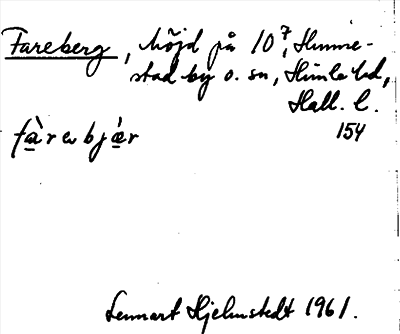 Fareberg, höjd på 10⁷, Hunne-
stad by o. sn, Himle hd,
Hall. l.
154
fàrɘbjǽr
Lennart Hjelmstedt 1961.